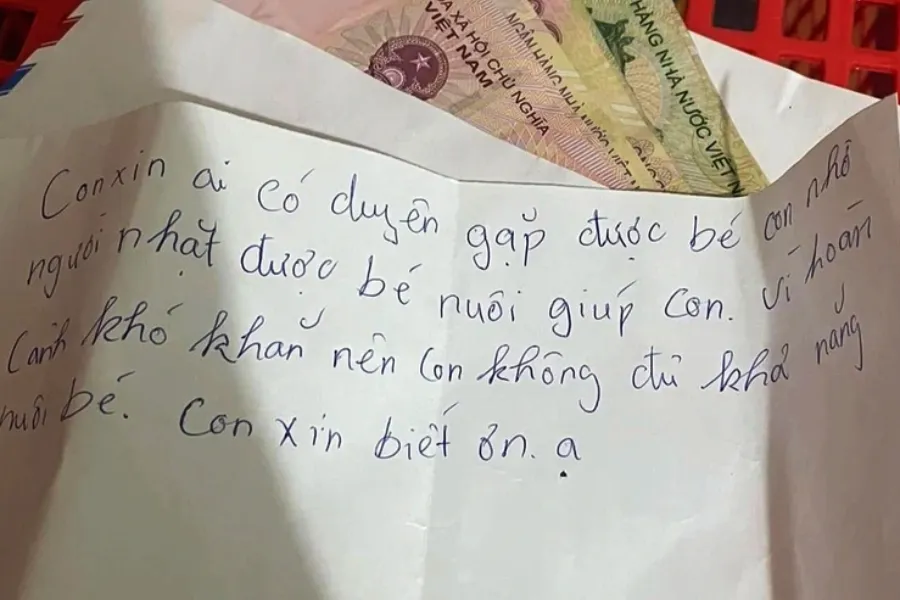 XÃ HỘI CHỦ NGHĨA
VIỆT NAM
NGÂN HÀNG NHÀ NƯỚC VIỆT
HÀNG NHÀ NƯỚC VIỆT N
Con xin ai có duyên gặp được bé con nhờ
người nhặt được bé nuôi giúp con. Vì hoàn
cảnh khó khăn nên con không đủ khả năng
nuôi bé. Con xin biết ơn. ạ